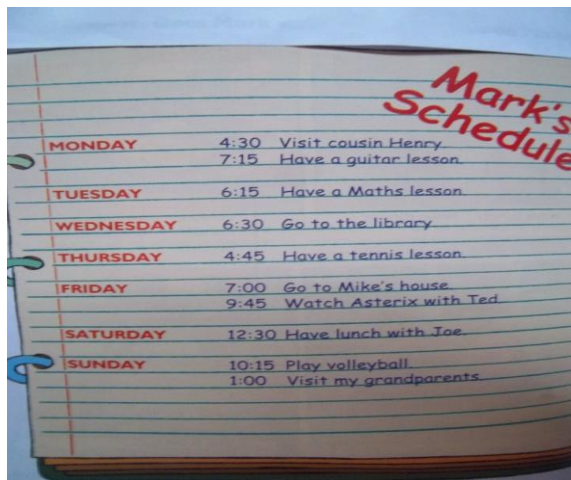 Mark's
Schedule
MONDAY 4:30 Visit cousin Henry.
7:15 Have a guitar lesson.
TUESDAY 6:15 Have a Maths lesson.
WEDNESDAY 6:30 Go to the library
THURSDAY 4:45 Have a tennis lesson.
FRIDAY 7:00 Go to Mike's house
9:45 Watch Asterix with Ted
SATURDAY 12:30 Have lunch with Joe.
SUNDAY 10:15 Play volleyball.
1:00 Visit my grandparents.